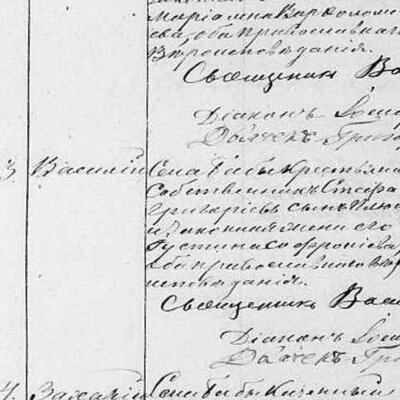 Маріамна Варѳоломе
ева, оба православнаго
вѣроисповѣданія.
Священникъ Ва
Діаконъ
Дьячекъ Григо
3 Василій Села крестьяни
собственникъ Стефа
Григоріевъ сынъ
и законная жена его
Іустина Софроніева,
оба православнаго вѣро
исповѣданія.
Священникъ Васи
Діаконъ
Дьячекъ Гри
4. Села